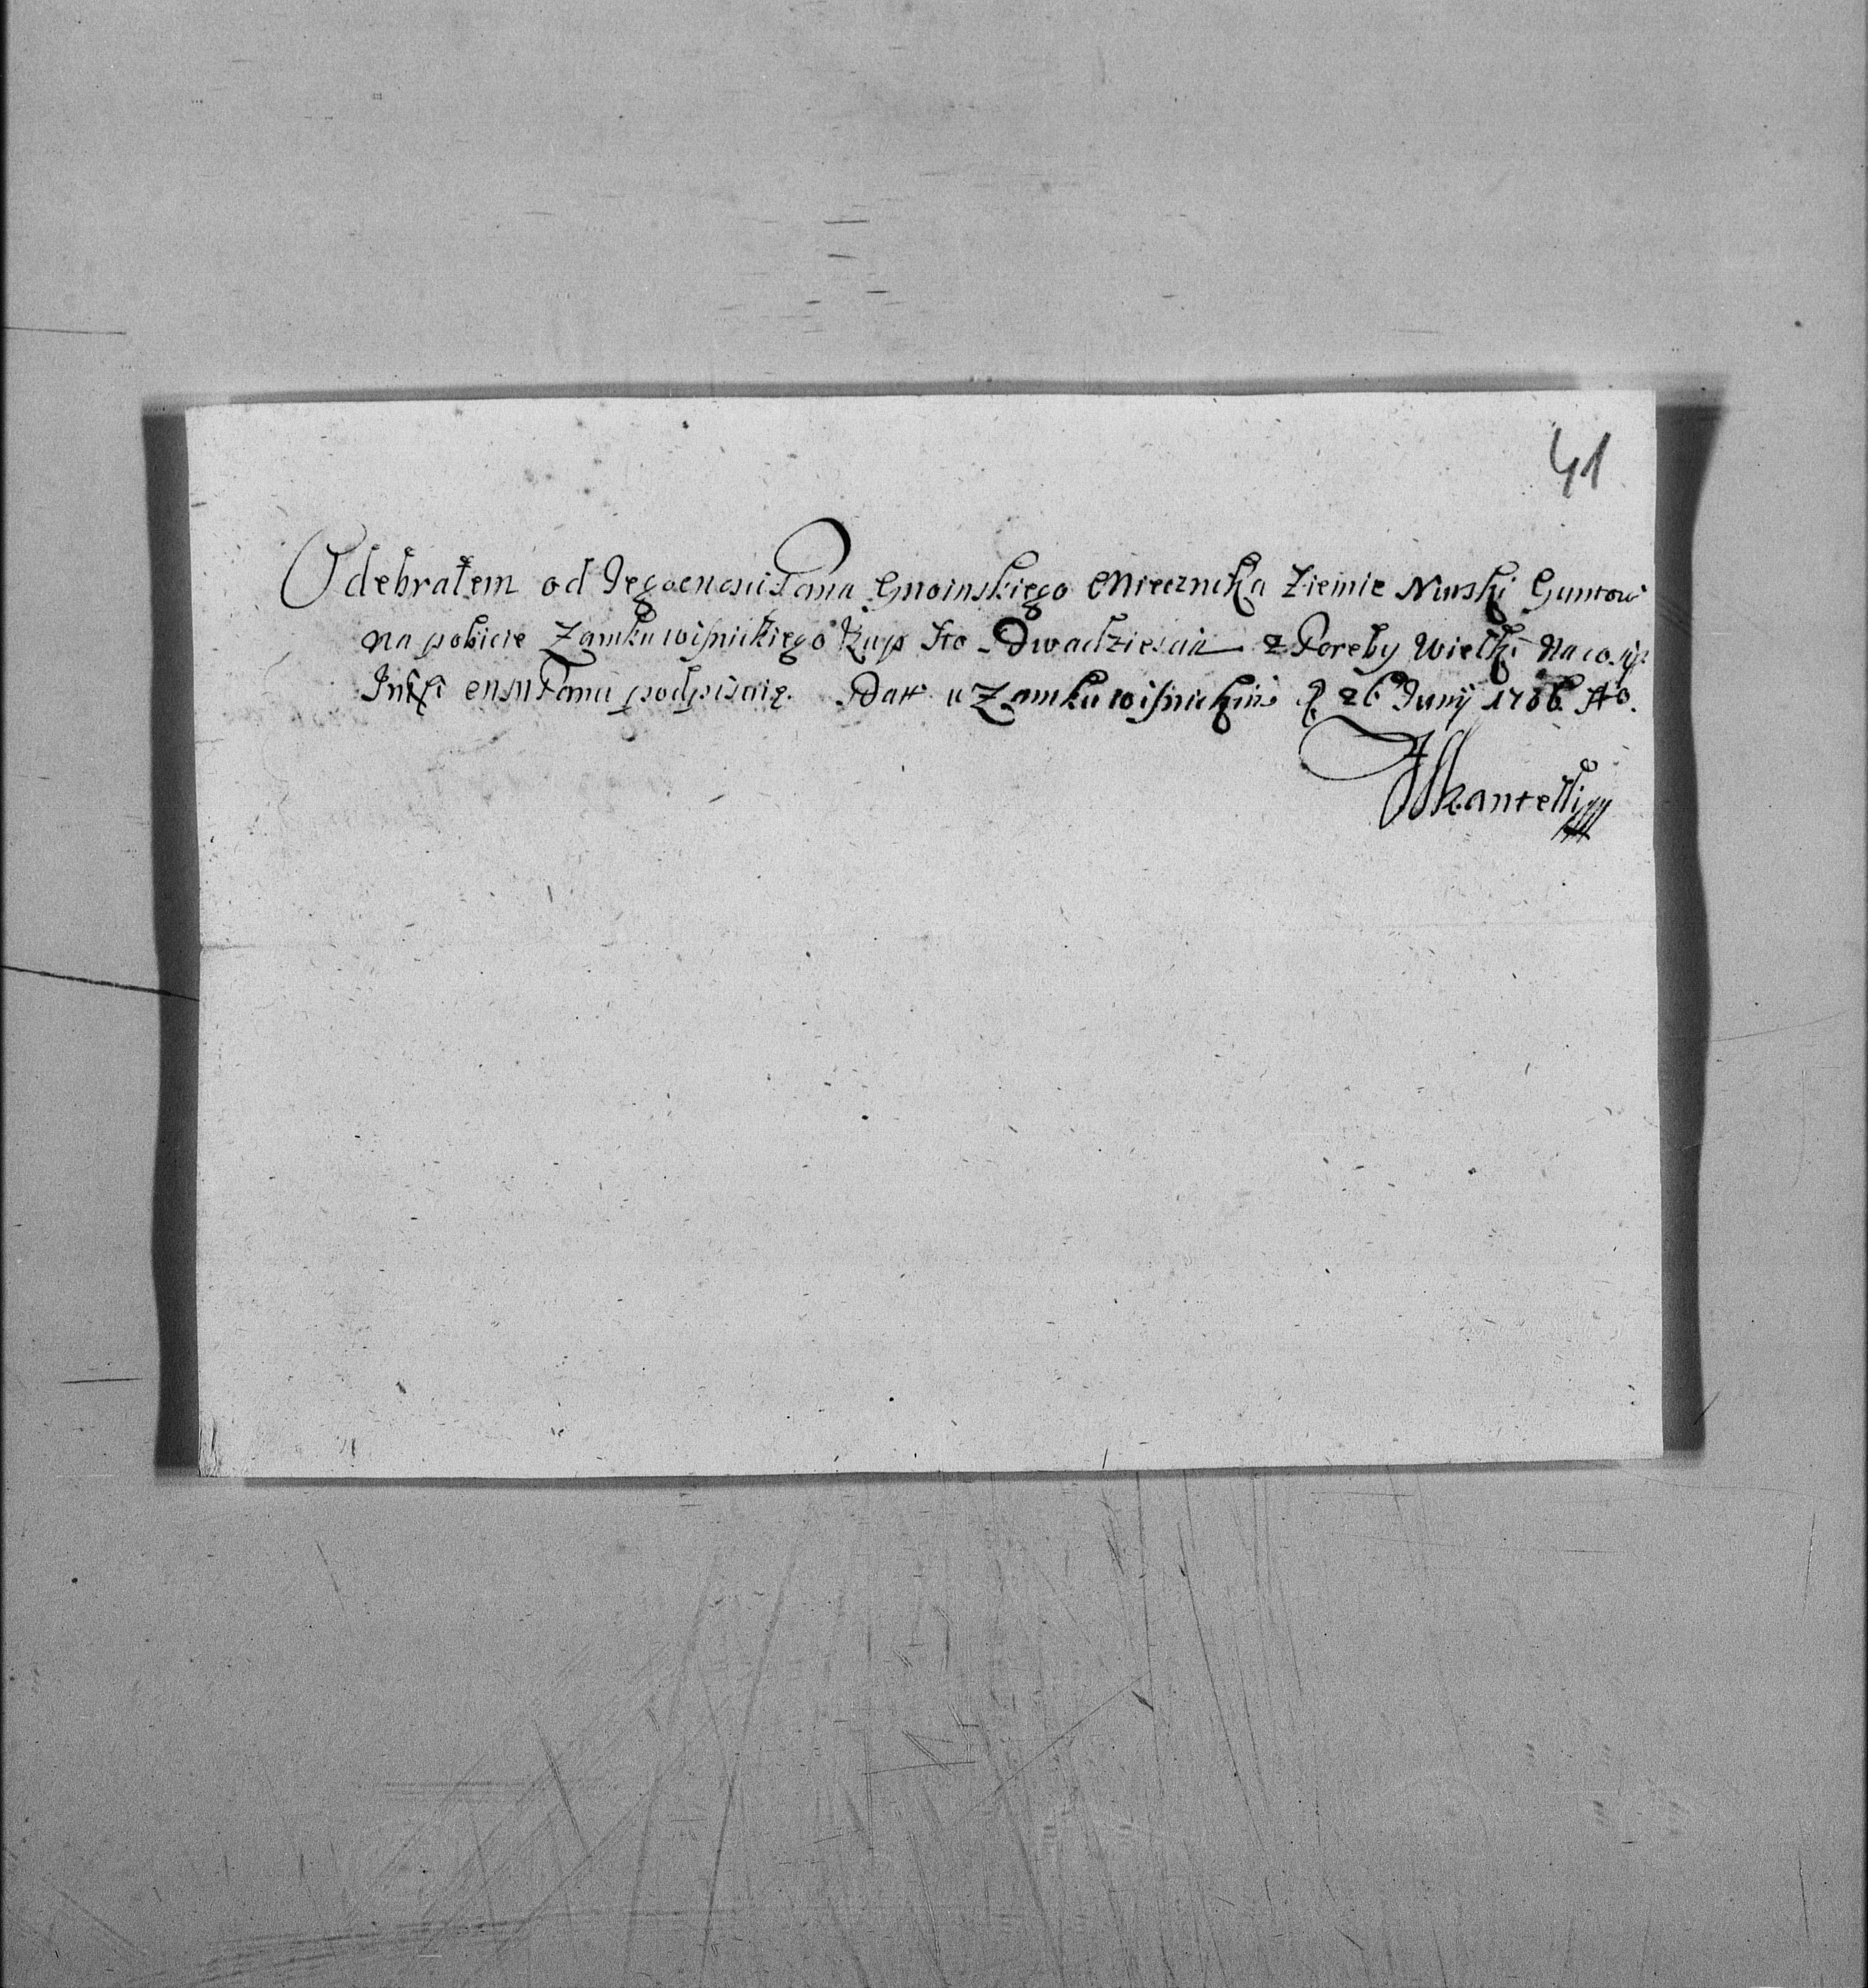 41
Odebrałem od Jegomosci Pana Gnoinskiego Miecznika Ziemie Nurski Guntow
na pobicie Zamku wisnickiego Kup sto Dwadziescia z Poreby Wielki Na co się
Pana podpisaię. Datt u Zamku wisnickim d 26 Junij 1766 Ao.
JSkantelli